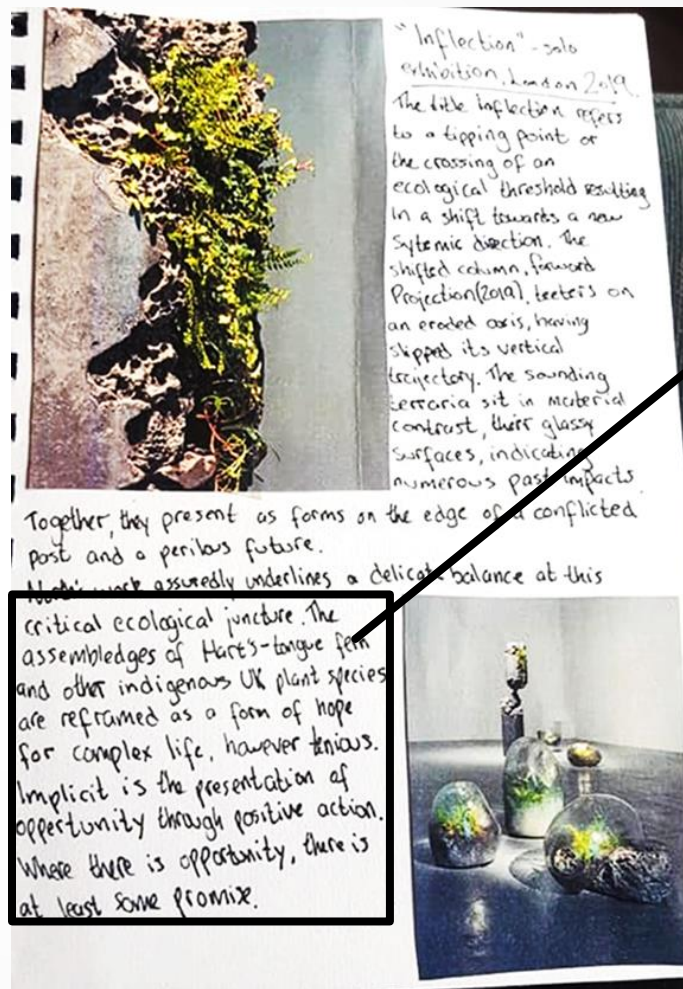 "Inflection" - solo
exhibition, London 2019
The title Inflection refers
to a tipping point or
the crossing of an
ecological threshold resulting
in a shift towards a new
Sytemic direction. The
shifted column, forward
Projection(2019), teeters on
an eroded axis, having
slipped its vertical
trajectory. The sounding
terraria sit in material
contrast, their glassy
surfaces, indicating
numerous past impacts.
Together, they present as forms on the edge of a conflicted
past and a perilous future.
work assuredly underlines a delicate balance at this
critical ecological juncture. The
assembledges of Hart's-tongue fern
and other indigenous UK plant species
are reframed as a form of hope
for complex life, however tenious.
Implicit is the presentation of
oppertunity through positive action.
Where there is opportunity, there is
at least some promise.